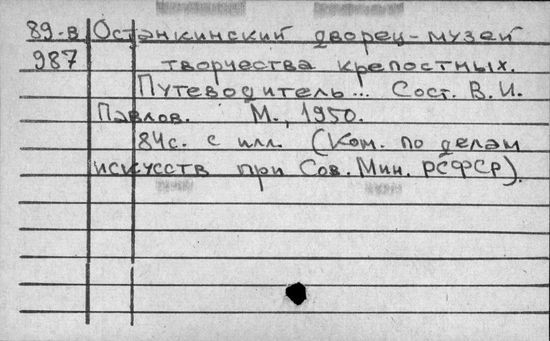 89-в Останкинский дворец-музей
987 творчества крепостных.
Путеводитель... Сост. В. И.
Павлов. М., 1950.
84с. с илл. (Ком. по делам
искусств при Сов. Мин. РСФСР).